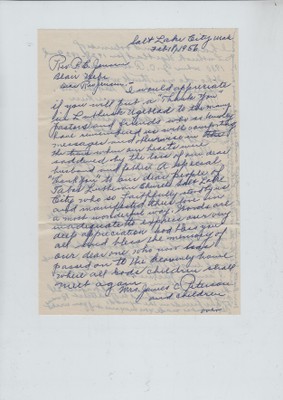 Salt Lake City, Utah
Feb. 18, 1956
Rev. P. C. Jensen
Blair Nebr.
Dear Rev. Jensen:
I would appreciate
if you will put a "Thank You"
in Lutheran Ugeblad to the many
pastors and friends who so kindly
has remembered us with comforting
messages and otherwise in
the time when our hearts were
saddened by the loss of our dear
husband and father. A special
"thank you" to our dear people of
Tabor Lutheran Church Salt Lake
City who so faithfully stood by us
and manifested their love in
a most wonderful way. Words are
inadequate to express our very
deep appreciation. God bless you
all. And bless the memory of
our dear one who now has
passed on to the heavenly home
where all Gods children shall
meet again.
Mrs. James C. Peterson
and children
over